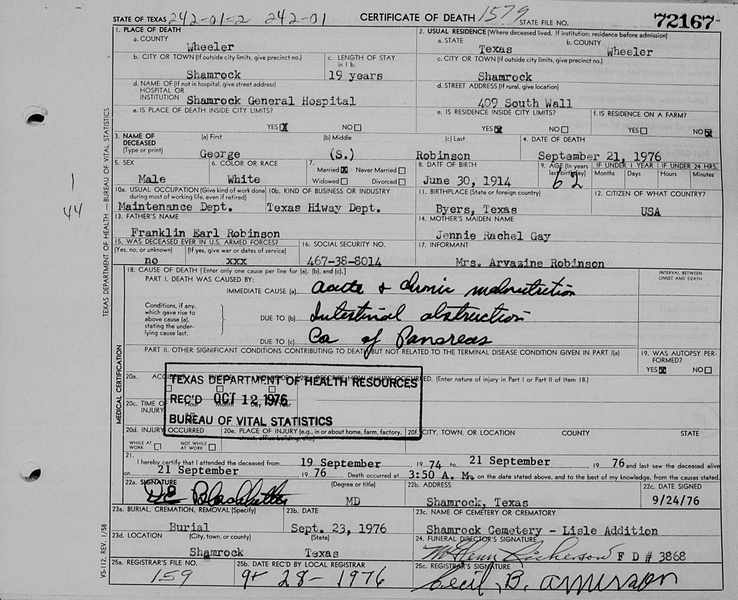 STATE OF TEXAS 242-01-2 242-01 CERTIFICATE OF DEATH 1579 STATE FILE NO. 72167
1. PLACE OF DEATH
a. COUNTY
Wheeler
2. USUAL RESIDENCE (Where deceased lived. If institution: residence before admission)
a. STATE b. COUNTY
Texas Wheeler
b. CITY OR TOWN (If outside city limits, give precinct no.) c. LENGTH OF STAY in 1 b.
Shamrock 19 years
c. CITY OR TOWN (If outside city limits, give precinct no.)
Shamrock
d. NAME OF (If not in hospital, give street address)
HOSPITAL OR
INSTITUTION Shamrock General Hospital
d. STREET ADDRESS (If rural, give location)
409 South Wall
e. IS PLACE OF DEATH INSIDE CITY LIMITS?
YES X NO
e. IS RESIDENCE INSIDE CITY LIMITS? f. IS RESIDENCE ON A FARM?
YES X NO YES NO X
3. NAME OF DECEASED (Type or print) (a) First (b) Middle (c) Last 4. DATE OF DEATH
George (S.) Robinson September 21, 1976
5. SEX 6. COLOR OR RACE 7. Married X Never Married Widowed Divorced
Male White
8. DATE OF BIRTH 9. AGE (In years last birthday) IF UNDER 1 YEAR Months Days IF UNDER 24 HRS. Hours Minutes
June 30, 1914 62
10a. USUAL OCCUPATION (Give kind of work done during most of working life, even if retired) 10b. KIND OF BUSINESS OR INDUSTRY
Maintenance Dept. Texas Hiway Dept.
11. BIRTHPLACE (State or foreign country) 12. CITIZEN OF WHAT COUNTRY?
Byers, Texas USA
13. FATHER'S NAME
Franklin Earl Robinson
14. MOTHER'S MAIDEN NAME
Jennie Rachel Gay
15. WAS DECEASED EVER IN U.S. ARMED FORCES?
(Yes, no, or unknown) (If yes, give war or dates of service)
no xxx
16. SOCIAL SECURITY NO.
467-38-8014
17. INFORMANT
Mrs. Arvazine Robinson
18. CAUSE OF DEATH [Enter only one cause per line for (a), (b), and (c).]
INTERVAL BETWEEN ONSET AND DEATH
PART I. DEATH WAS CAUSED BY:
IMMEDIATE CAUSE (a) acute + chronic malnutrition
Conditions, if any, which gave rise to above cause (a), stating the underlying cause last.
DUE TO (b) Intestinal obstruction
DUE TO (c) Ca of Pancreas
PART II. OTHER SIGNIFICANT CONDITIONS CONTRIBUTING TO DEATH BUT NOT RELATED TO THE TERMINAL DISEASE CONDITION GIVEN IN PART I(a)
19. WAS AUTOPSY PERFORMED?
YES X NO
20a. OCCURRED. (Enter nature of injury in Part I or Part II of Item 18.)
TEXAS DEPARTMENT OF HEALTH RESOURCES
REC'D OCT 12 1976
BUREAU OF VITAL STATISTICS
20c. TIME OF INJURY
20d. INJURY OCCURRED
WHILE AT WORK NOT WHILE AT WORK
20e. PLACE OF INJURY (e.g., in or about home, farm, factory,
20f. CITY, TOWN, OR LOCATION COUNTY STATE
21. I hereby certify that I attended the deceased from 19 September 19 74 to 21 September 19 76 and last saw the deceased alive
on 21 September 19 76 Death occurred at 3:50 A. M. on the date stated above, and to the best of my knowledge, from the causes stated.
22a. SIGNATURE (Degree or title) 22b. ADDRESS 22c. DATE SIGNED
MD Shamrock, Texas 9/24/76
23a. BURIAL, CREMATION, REMOVAL (Specify) 23b. DATE 23c. NAME OF CEMETERY OR CREMATORY
Burial Sept. 23, 1976 Shamrock Cemetery - Lisle Addition
23d. LOCATION (City, town, or county) (State)
Shamrock Texas
24. FUNERAL DIRECTOR'S SIGNATURE
F D # 3868
25a. REGISTRAR'S FILE NO. 25b. DATE REC'D BY LOCAL REGISTRAR 25c. REGISTRAR'S SIGNATURE
159 9-28-1976 Cecil B.
TEXAS DEPARTMENT OF HEALTH — BUREAU OF VITAL STATISTICS
MEDICAL CERTIFICATION
VS-112, REV. 1/58
1
44